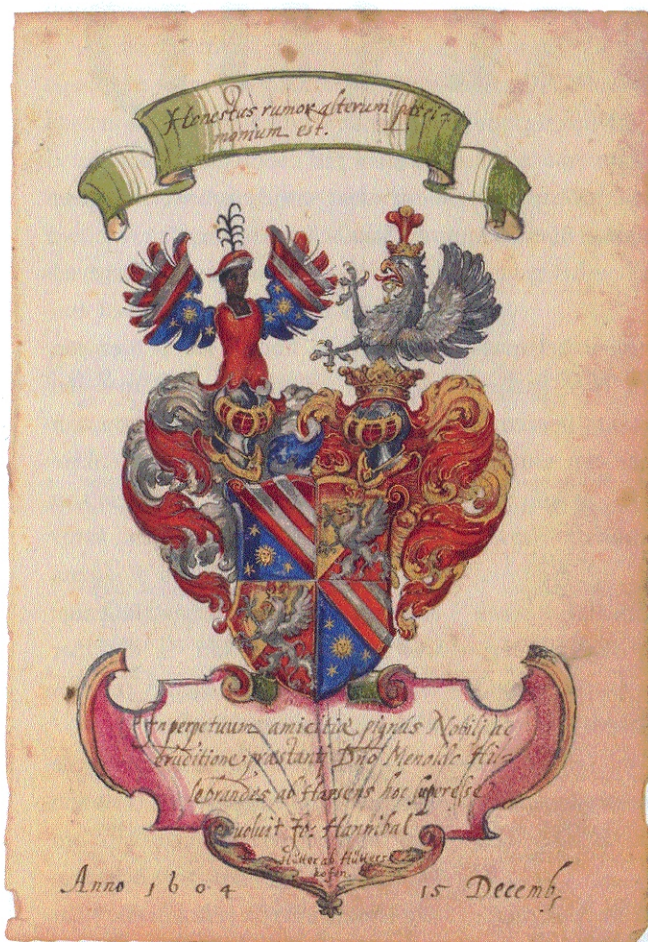 Honestus rumor alterum patri-
monium est.
In perpetuum amicitiæ pignus Nobili ac
Eruditione præstanti Dno Menoldo Hil-
lebrandes ab Harsens hoc superesse
voluit Jo: Hannibal
Hütter ab Hütters
hofen.
Anno 1604 15 Decemb.